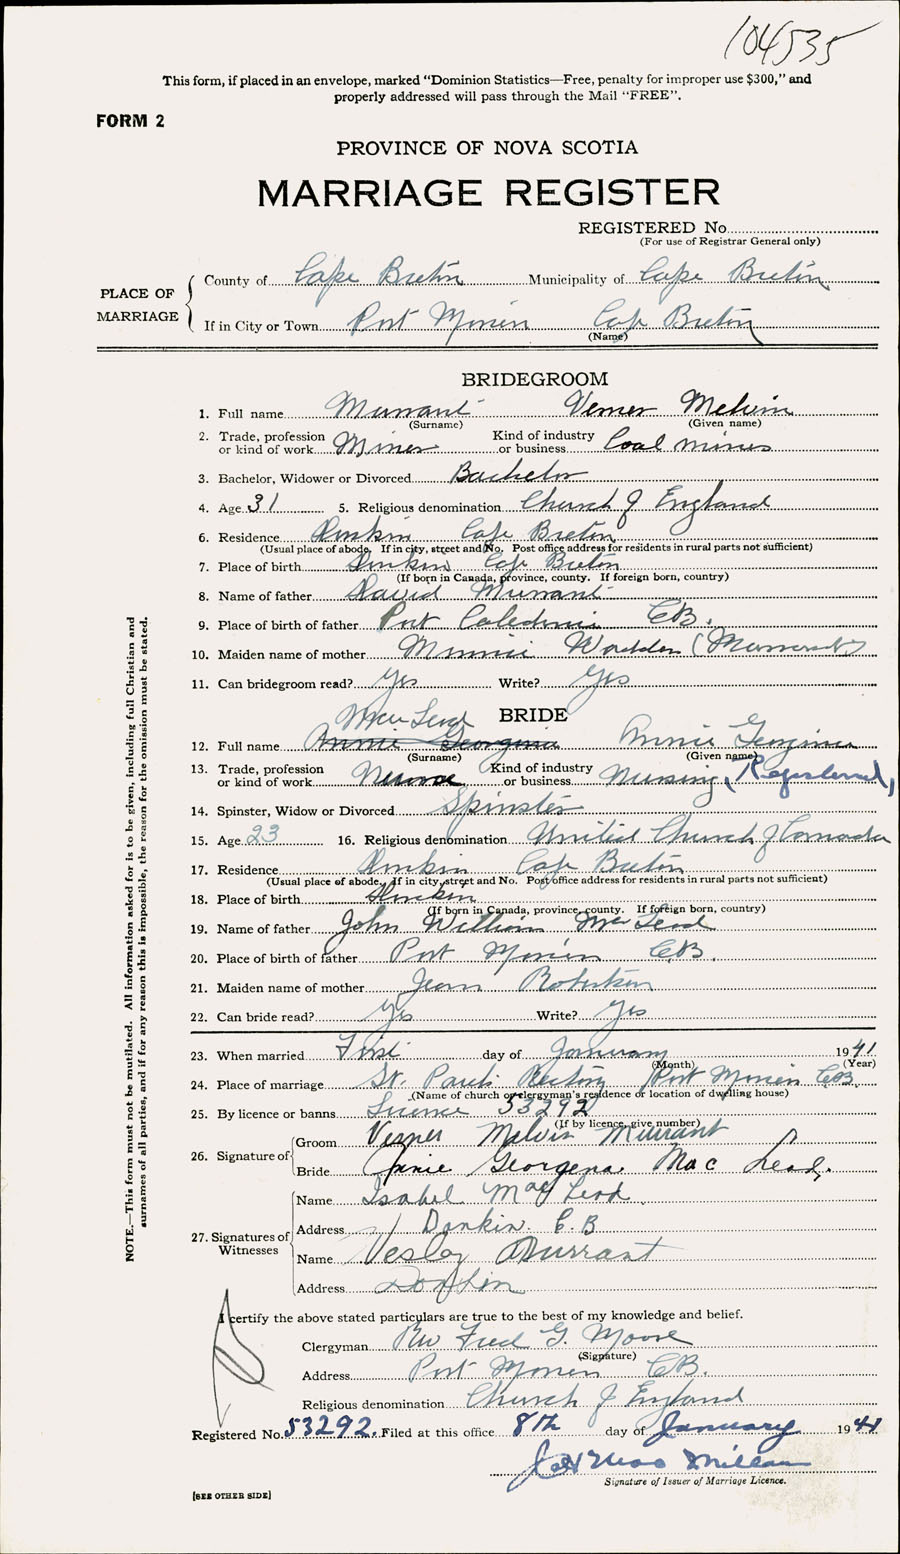 104535
This form, if placed in an envelope, marked "Dominion Statistics—Free, penalty for improper use $300," and
properly addressed will pass through the Mail "FREE".
FORM 2
PROVINCE OF NOVA SCOTIA
MARRIAGE REGISTER
REGISTERED No.
(For use of Registrar General only)
PLACE OF MARRIAGE
County of Cape Breton Municipality of Cape Breton
If in City or Town Port Morien Cape Breton
(Name)
BRIDEGROOM
1. Full name Murrant Verner Melvin
(Surname) (Given name)
2. Trade, profession or kind of work Miner Kind of industry or business Coal mines
3. Bachelor, Widower or Divorced Bachelor
4. Age 31 5. Religious denomination Church of England
6. Residence Donkin Cape Breton
(Usual place of abode. If in city, street and No. Post office address for residents in rural parts not sufficient)
7. Place of birth Donkin Cape Breton
(If born in Canada, province, county. If foreign born, country)
8. Name of father David Murrant
9. Place of birth of father Port Caledonia CB.
10. Maiden name of mother Minnie Wadden (Murrant)
11. Can bridegroom read? Yes Write? Yes
BRIDE
MacLeod
12. Full name Annie Georgina Annie Georgina
(Surname) (Given name)
13. Trade, profession or kind of work Nurse Kind of industry or business Nursing, (Registered)
14. Spinster, Widow or Divorced Spinster
15. Age 23 16. Religious denomination United Church of Canada
17. Residence Donkin Cape Breton
(Usual place of abode. If in city, street and No. Post office address for residents in rural parts not sufficient)
18. Place of birth Donkin
(If born in Canada, province, county. If foreign born, country)
19. Name of father John William MacLeod
20. Place of birth of father Port Morien C.B.
21. Maiden name of mother Jean Robertson
22. Can bride read? Yes Write? Yes
23. When married First day of January 1941
(Month) (Year)
24. Place of marriage St. Pauls Rectory Port Morien CB
(Name of church or clergyman's residence or location of dwelling house)
25. By licence or banns License 53292
(If by licence, give number)
26. Signature of
Groom Verner Melvin Murrant
Bride Annie Georgena MacLeod.
27. Signatures of Witnesses
Name Isabel MacLeod
Address Donkin. C.B
Name Vesley Murrant
Address Donkin
I certify the above stated particulars are true to the best of my knowledge and belief.
Clergyman Rev Fred G. Moore
(Signature)
Address Port Morien CB.
Religious denomination Church of England
Registered No. 53292. Filed at this office 8th day of January 1941
MacMillan
Signature of Issuer of Marriage Licence.
[SEE OTHER SIDE]
NOTE.—This form must not be mutilated. All information asked for is to be given, including full Christian and
surnames of all parties, and if for any reason this is impossible, the reason for the omission must be stated.